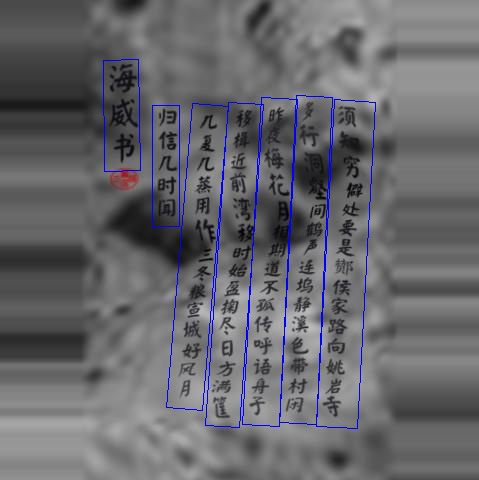 须知穷僻处要是酂侯家路向姚岩寺
多行洞壑间鹤声连坞静溪色带村闲
昨夜梅花月相期道不孤传呼语舟子
移楫近前湾移时始盈掬尽日方满筐
几夏几蒸用作三冬粮宣城好风月
归信几时闻
海威书